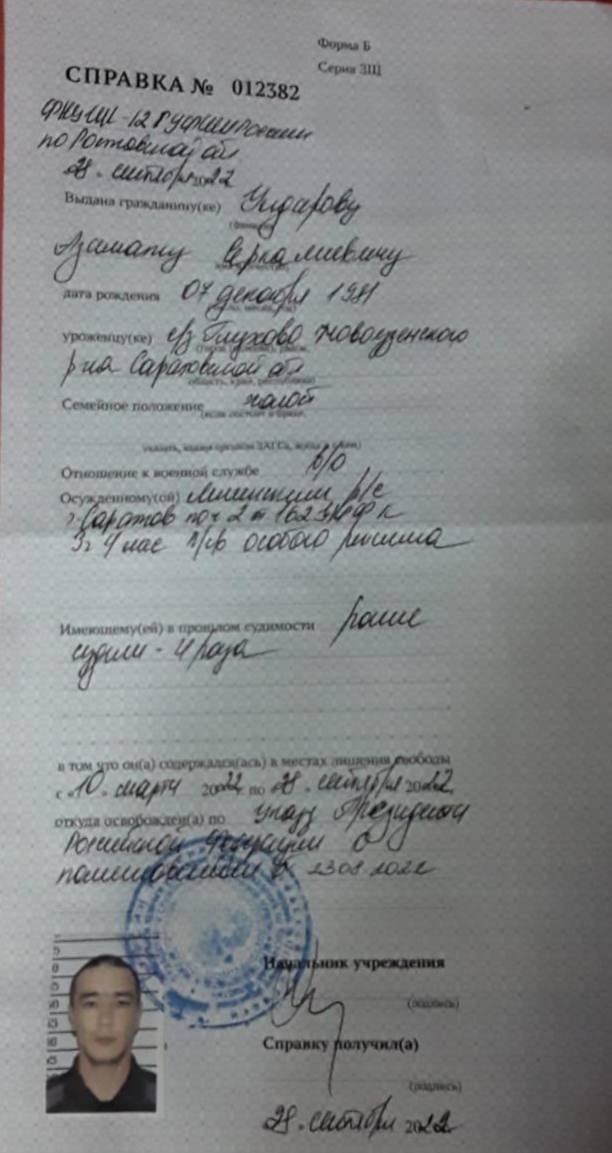 Форма Б
Серия ЗЩ
СПРАВКА № 012382
ГУФСИН России
по Ростовской обл
28 сентября 2022
Выдана гражданину(ке) Уидарову
(фамилия)
Азамату Серкалиевичу
дата рождения 07 декабря 1981
уроженцу(ке) с/з Глухово Новоузенского
р-на Саратовской обл
область, край, республика)
Семейное положение холост
(если состоит в браке,
указать, каким органом ЗАГСа, когда и с кем)
Отношение к военной службе в/о
Осужденному(ой) Ленинским р/с
г. Саратов по ч 2 ст 162 УК РФ к
3г 4 мес л/св особого режима
Имеющему(ей) в прошлом судимости ранее
судим - 4 раза
в том что он(а) содержался(ась) в местах лишения свободы
с «10» марта 2022 по «28» сентября 2022
откуда освобожден(а) по указу Президента
Российской Федерации о
помиловании 23 08 2022
Начальник учреждения
(подпись)
Справку получил(а)
(подпись)
28 сентября 2022